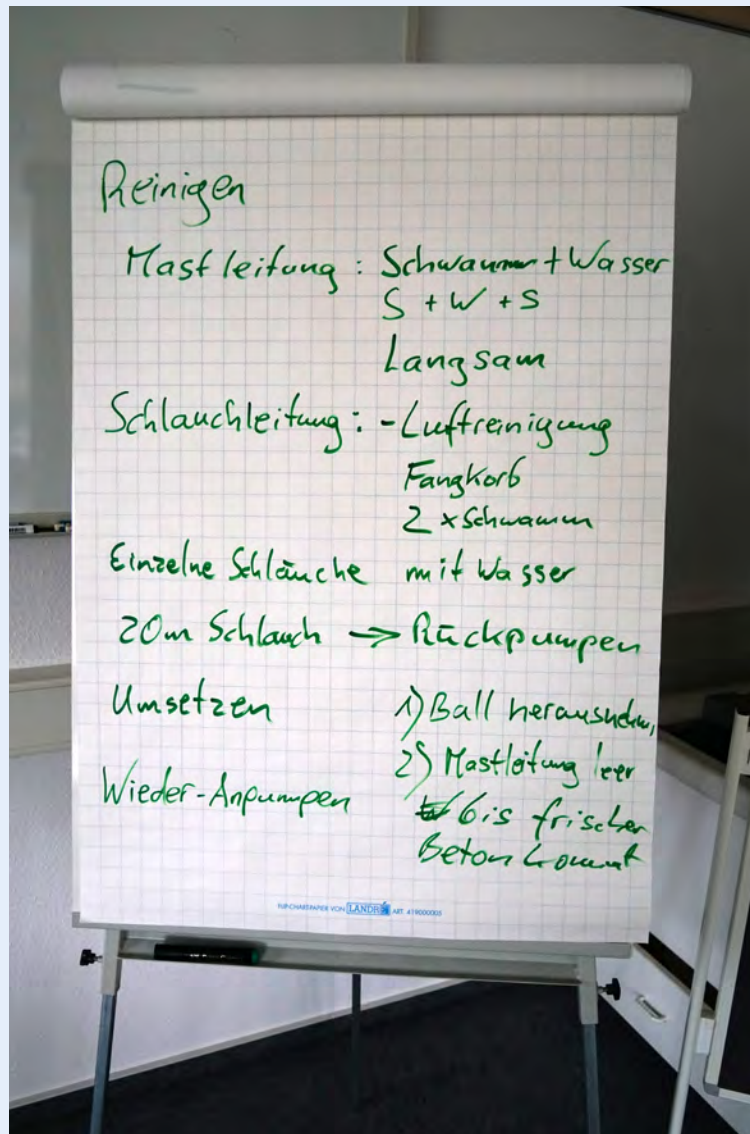 Reinigen
Mastleitung: Schwamm + Wasser
S + W + S
Langsam
Schlauchleitung: - Luftreinigung
Fangkorb
2 x Schwamm
Einzelne Schläuche mit Wasser
20m Schlauch → Rückpumpen
Umsetzen 1) Ball herausnehm,
2) Mastleitung leer
Wieder-Anpumpen bis frischer
Beton kommt
FLIP-CHARTPAPIER VON LANDRÉ ART. 419000005